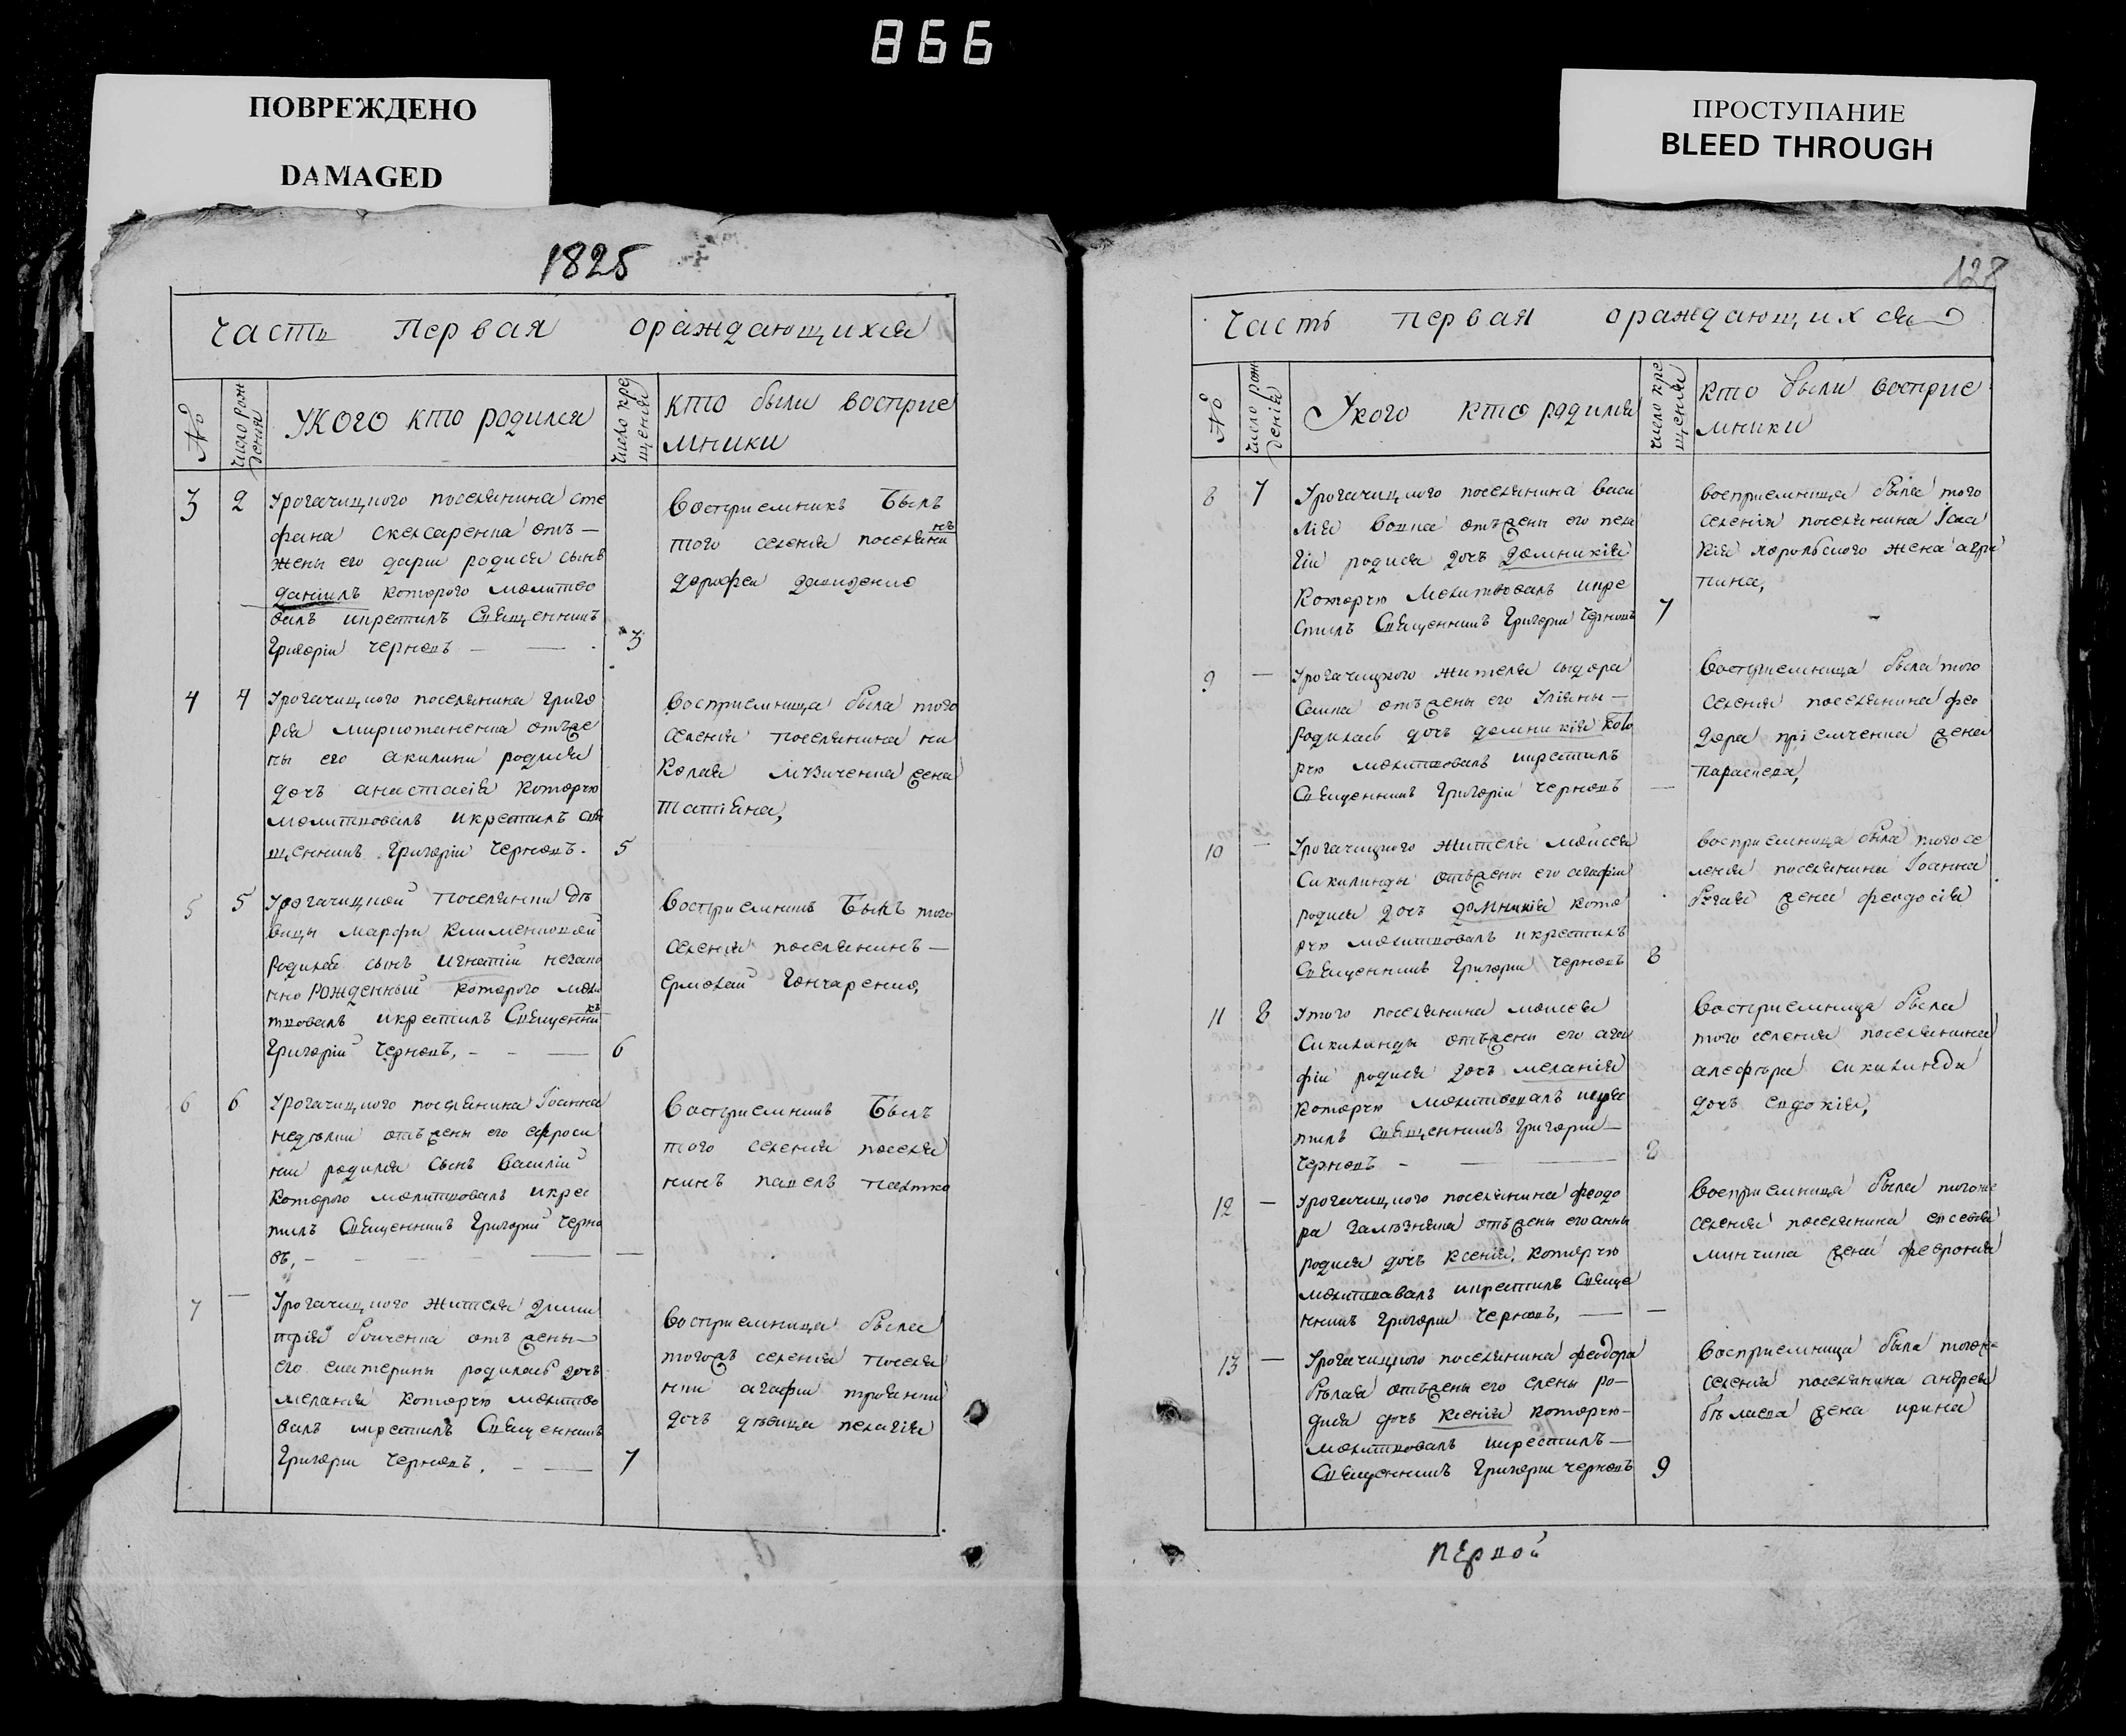 866
ПОВРЕЖДЕНО
DAMAGED
ПРОСТУПАНИЕ
BLEED THROUGH
1825
Часть Первая ораждающихся
№
Число рож
дения
У КОГО кто родился
Число кре
щения
кто были восприе
мники
3 2 Урогачицкого поселянина Сте
фана Скелсаренка отъ —
жены его дарии родися сынъ
даніилъ которого молитво
валъ икрестилъ Священникъ
Григорій Черновъ — — 3
Восприемникъ Былъ
того селения поселяни
нъ
дорофеи
4 4 Урогачицкого поселянина Григо
рия отъже
ны его акилини родися
дочъ анастасія которую
молитвовалъ икрестилъ Свя
щенникъ Григорій Черновъ. 5
восприемница была того
селения поселянина ни
колая жена
татіяна,
5 5 Урогачицкой поселянки дѣ
вицы Марфи Клименковой
родился сынъ игнатій незако
нно рожденный которого моли
твовалъ икрестилъ Священни
къ
Григорій Черновъ, - - — 6
Восприемникъ Былъ того
селения поселянинъ —
ермолай Гончаренко,
6 6 Урогачицкого поселянина Іоанна
отъжены его ефроси
нии родился сынъ Василій
которого молитвовалъ икрес
тилъ Священникъ Григорій Черно
въ, - — — — —
Восприемникъ Былъ
того селения поселя
нинъ павелъ
7 — Урогачицкого жителя дими
трія бойченка отъ жены —
его екатерины родилась дочъ
мелания которую молитво
валъ икрестилъ Священникъ
Григорій Черновъ. - — 7
Восприемница была
тогожъ селения поселя
нки агафии
дочъ дѣвица пелагія
128
Часть первая ораждающихся
№
Число рож
денія
У кого кто родился
число кре
щения
кто были восприе
мники
8 7 Урогачицкого поселянина васи
лия отъжены его пела
гіи родися дочъ домникія
которую молитвовалъ икре
стилъ Священникъ Григорій Черновъ 7
восприемница была того
селенія поселянина Іоаа
кія жена агри
пина,
9 — Урогачицкого жителя сидора
отъжены его Уліяны —
родилась дочъ домникія кото
рую молитвовалъ икрестилъ
Священникъ Григорій Черновъ —
Восприемница была того
селения поселянина фео
дора жена
параскева,
10 — Урогачицкого жителя моисея
Сикилинды отъжены его агафіи
родися дочъ домникія кото
рую молитвовалъ икрестилъ
Священникъ Григорій Черновъ 8
восприемница была того се
ления поселянина Іоанна
жена феодосія
11 8 Утого поселянина моисея
Сикилинды отъжены его ага
фіи родися дочъ меланія
которую молитвовалъ икрес
тилъ Священникъ Григорій —
Черновъ - — — 8
Восприемница была
того селения поселянина
сикилинди
дочъ евдокія,
12 — Урогачицкого поселянина феодо
ра отъжены его анны
родися дочъ ксенія, которую
молитвавалъ икрестилъ Свяще
нникъ Григорій Черновъ, — —
Восприемница была тогоже
селения поселянина евсевія
минчина жена феврония
13 — Урогачицкого поселянина феодора
бѣлая отъжены его елены ро-
дися дочъ ксенія которую-
молитвовалъ икрестилъ —
Священникъ Григорій Черновъ 9
Восприемница была тогоже
селения поселянина андрея
бѣлаева жена ирина
первой